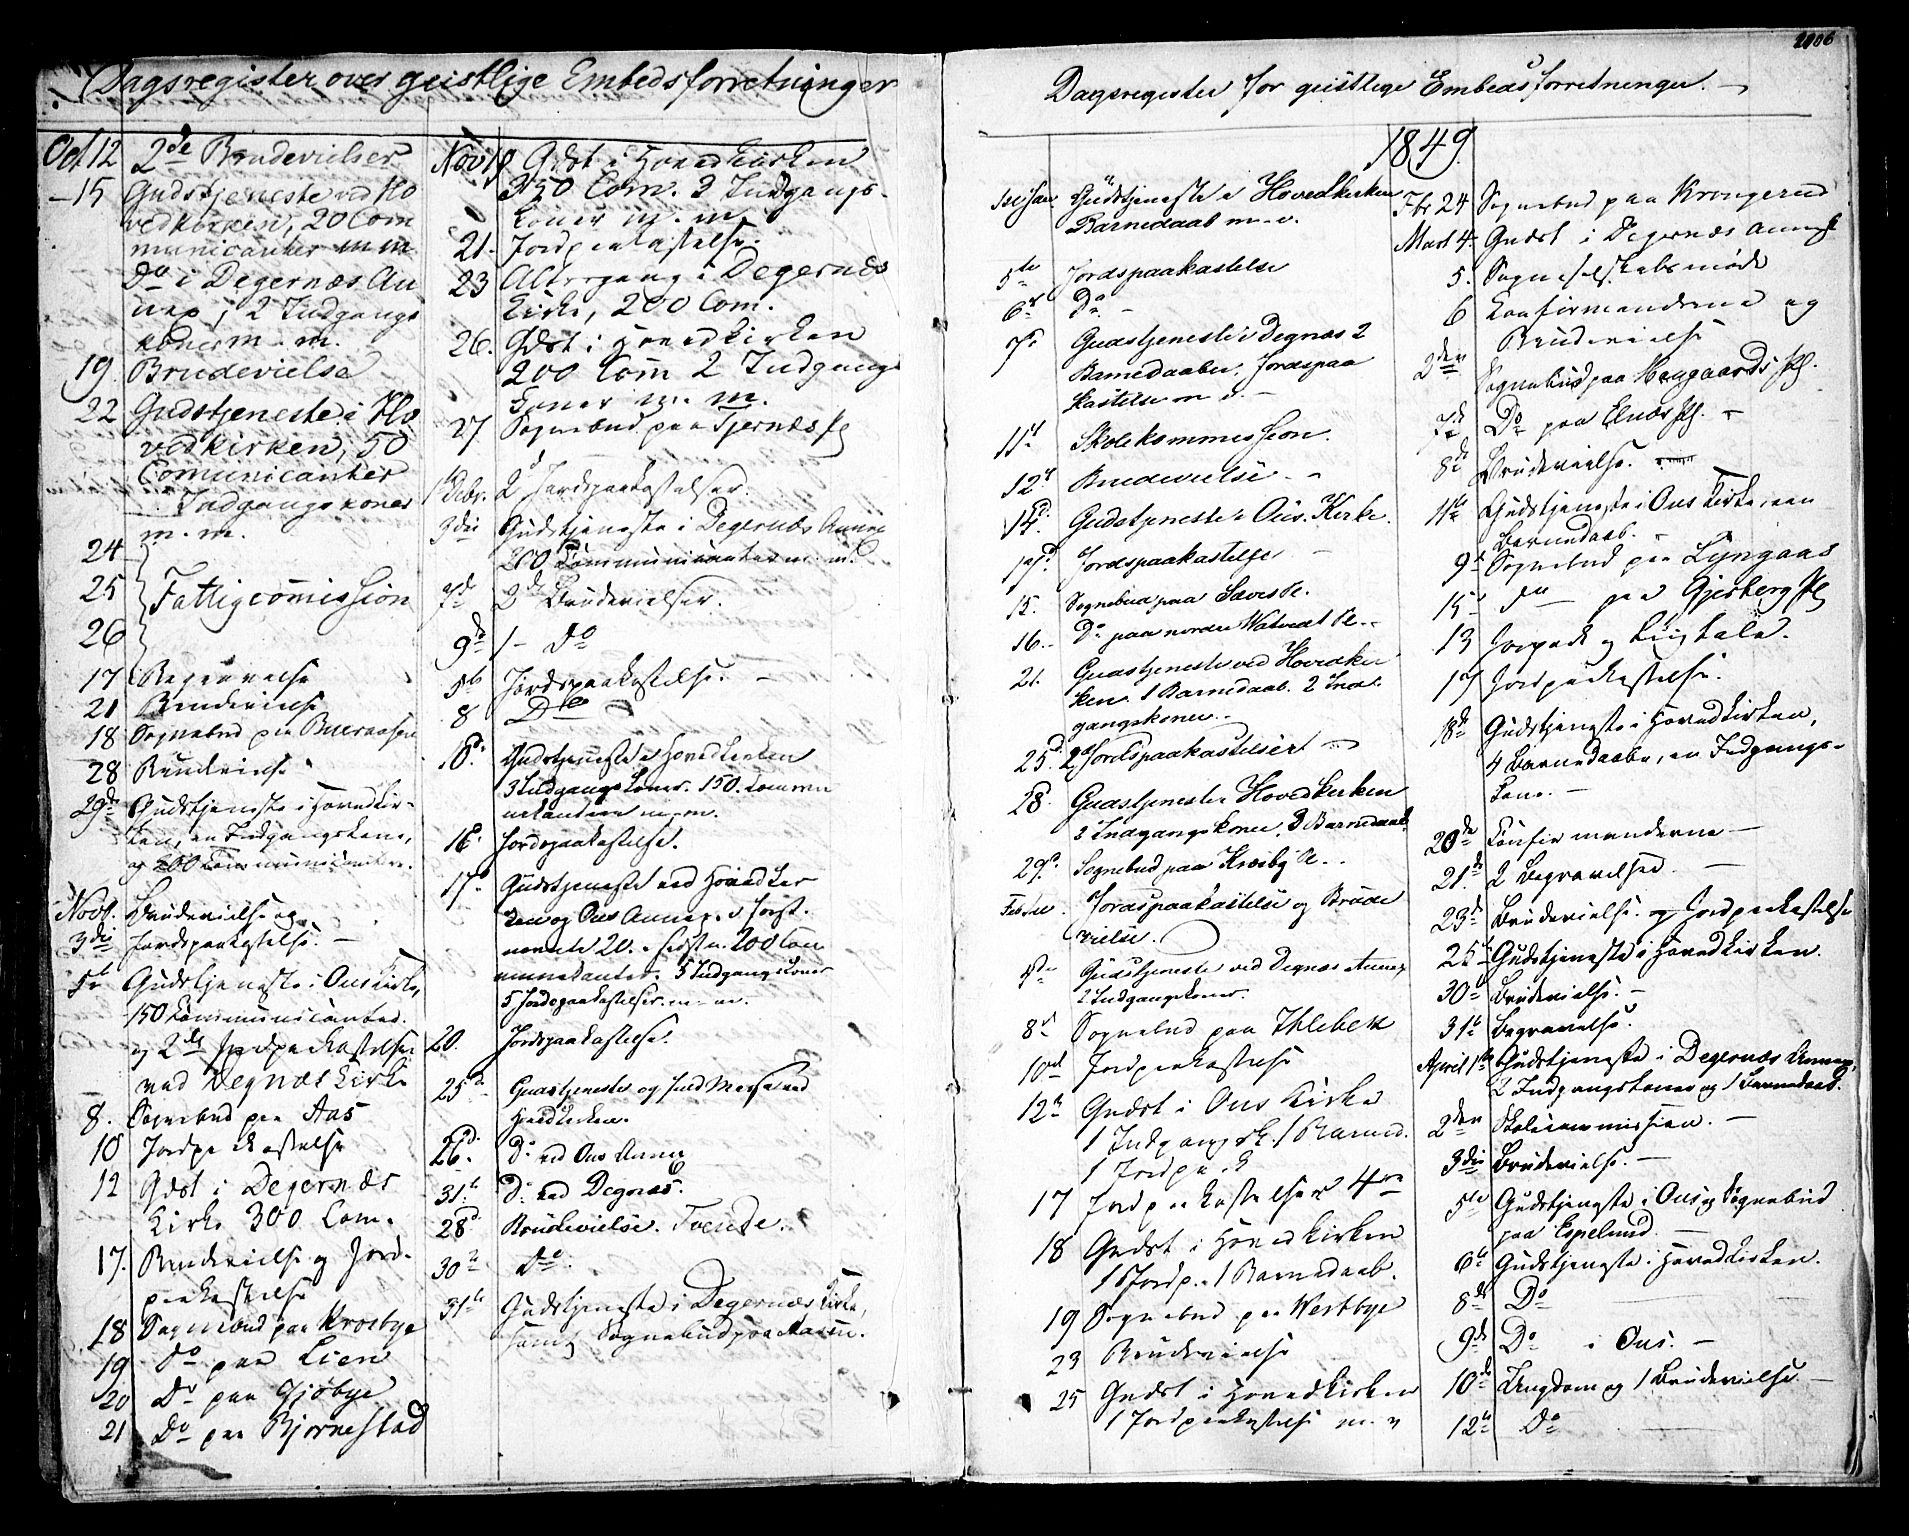 Dagsregister over geistlige Embedsforretninger
Oct 12 2de Brudevielser
— 15 Gudstjeneste ved Ho
vedkirken, 20 Com
municanter m m
Do i Degernæs An
nex, 2 Indgangs
koner m. m.
19. Brudevielse
22 Gudstjeneste i Ho
vedkirken, 50
Comunicanter
Indgangskoner
m. m.
24
25 Fattigcomission
26
17 Begravelse
21 Brudevielse
18 Sognebud paa Bueraasen
28 Brudevielse
29de Gudstjeneste i Hovedkir-
ken, en Indgangskone,
og 200 Communicanter.
Novb. Brudevielse og
3die Jordspaakastelse. —
5te Gudstjeneste i Ous Kirke,
150 Communicanter.
og 2de Jordpaakastelser
ved Degnæs Kirke
8. Sognebud paa Aas
10 Jordpaakastelse
12 Gdst i Degernæs
Kirke 300 Com.
17. Brudevielse og Jord-
paakastelse
18 Sognebud paa Krosbye
19 Do paa Lien
20 Do paa Gjøbye
21 Do paa Bjørnestad
Nov 19 Gdst i Hovedkirken
350 Com. 3 Indgangs-
koner m. m.
21. Jordpaakastelse.
23 Altergang i Degernæs
Kirke, 200 Com.
26. Gdst i Hovedkirken
200 Com 2 Indgangs
koner m. m.
27 Sognebud paa Tjernæs Pl
1 Debr. 2 Jordspaakastelser.
3die Gudstjeneste i Degernæs Annex
200 Communicanter m. m.
7d 2de Brudevielser.
9de 1 — Do
5te Jordspaakastelse. —
8 Do
10d. Gudstjeneste i Hovedkirken
3 Indgangskoner. 150. Commu
nikanter m. m.
16. Jordspaakastelse.
17d Gudstjeneste ved Hovedkir
ken og Ous Annex. v. først.
nævnte 20. v. sidstn. 200 Com
munikanter. 5 Indgangskoner
5 Jordspaakastelser. m. m.
20. Jordspaakastelse.
25d Gudstjeneste og Messe ved
Hovedkirken.
26d. Do ved Ous Annex
31te Do ved Degnæs.
28d. Brudevielse. Tvende.
30te Do.
31te Gudstjeneste i Degernæs Kirke,
samt Sognebud paa Aasen.
Dagsregister for geistlige Embedsforretninger. —
1849.
Gudstjeneste i Hovedkirken
Barnedaab m. v.
5te Jordspaakastelse
6te Do —
7d Gudstjeneste i Degnæs 2
Barnedaaber, Jordspaa
kastelse m v. —
11te Skolekommission.
12te Brudevielse —
14d. Gudstjeneste i Ous. Kirke.
17d. Jordspaakastelse —
15. Sognebud paa Sæves Pl.
16. Do paa nordre Watvedt Pl. —
21. Gudstjeneste ved Hovedkir
ken 1 Barnedaab. 2 Ind
gangskoner. —
25d. 2 Jordspaakastelser —
28. Gudstjeneste i Hovedkirken
2 Indgangskoner, 3 Barnedaab.
29d. Sognebud paa Krosby Pl. —
Jordspaakastelse og Brude
vielse.
Gudstjeneste ved Degnæs Annex
2 Indgangskoner.
8d Sognebud paa Ihlebek
10nd Jordpaakastelse
12te Gudst i Ous Kirke
1 Indgangsk. 1 Barned.
1 Jordpaak
17 Jordpaakastelser 4re
18 Gudst i Hovedkirken
1 Jordp. 1 Barnedaab.
19 Sognebud paa Westbye
23 Brudevielse
25 Gudst i Hovedkirken
1 Jordpaakastelse m. v
Fbr 24 Sognebud paa Krongerud
Mart 4. Gudst i Degernæs Annex
5. Sogneselskabsmøde
6 Konfirmanderne og
Brudevielse
2den Sognebud paa Haugaards Pl.
7de Do paa Elnæs Pl. —
8de Brudevielse.
11te Gudstjeneste i Ous Kirke, en
Barnedaab. —
9d Sognebud paa Lyngaas
15d do — paa Gjesberg Pl
13 Jorpaak og Liigtale.
17 Jordpaakastelse.
18de Gudstjeneste i Hovedkirken,
4 Barnedaabe, en Indgangs-
kone. —
20de Confirmanderne —
21de 2 Begravelser. —
23de Brudevielse. og Jordpaakastelse
25te Gudstjeneste i Hovedkirken.
30d Brudevielse. —
31te Begravelse.
April 1ste Gudstjeneste i Degernæs Annex,
2 Indgangskoner og 1 Barnedaab.
2den Skolecommission. —
3die Brudevielse. —
5te Gudstjeneste i Ous og Sognebud
paa Espelund. —
6te Gudstjeneste i Hovedkirken.
8de Do
9de Do i Ous. —
10de Ungdom og 1 Brudevielse —
12te Do